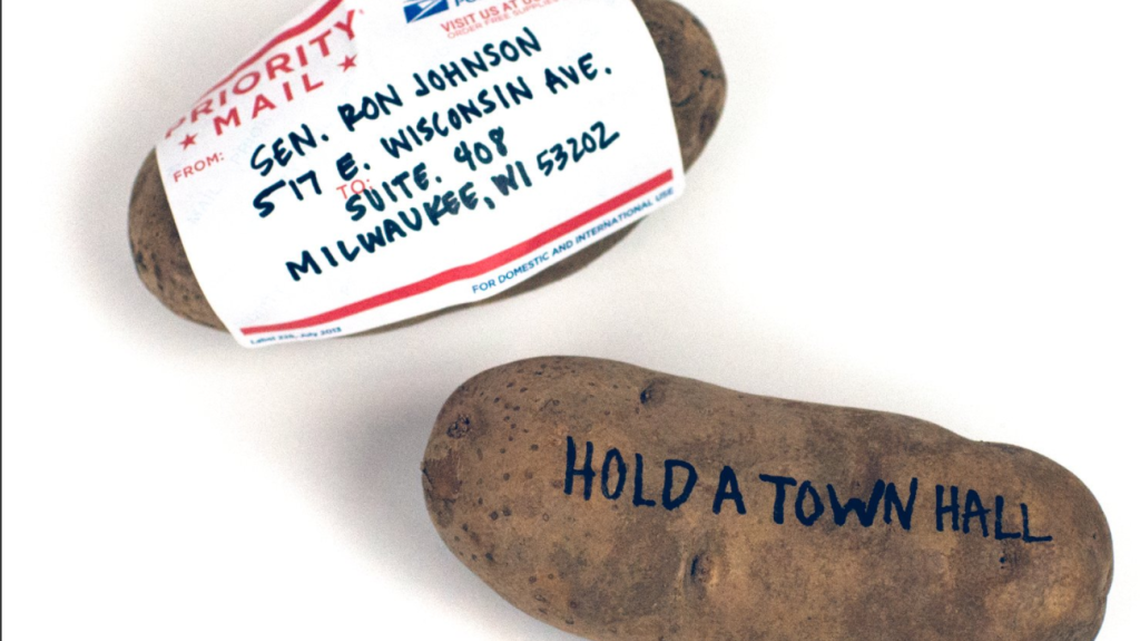 PRIORITY
★ MAIL ★
VISIT US AT
ORDER FREE SUPPLIES
FROM:
SEN. RON JOHNSON
517 E. WISCONSIN AVE.
TO:
SUITE. 408
MILWAUKEE, WI 53202
FOR DOMESTIC AND INTERNATIONAL USE
Label 228, July 2013
HOLD A TOWN HALL